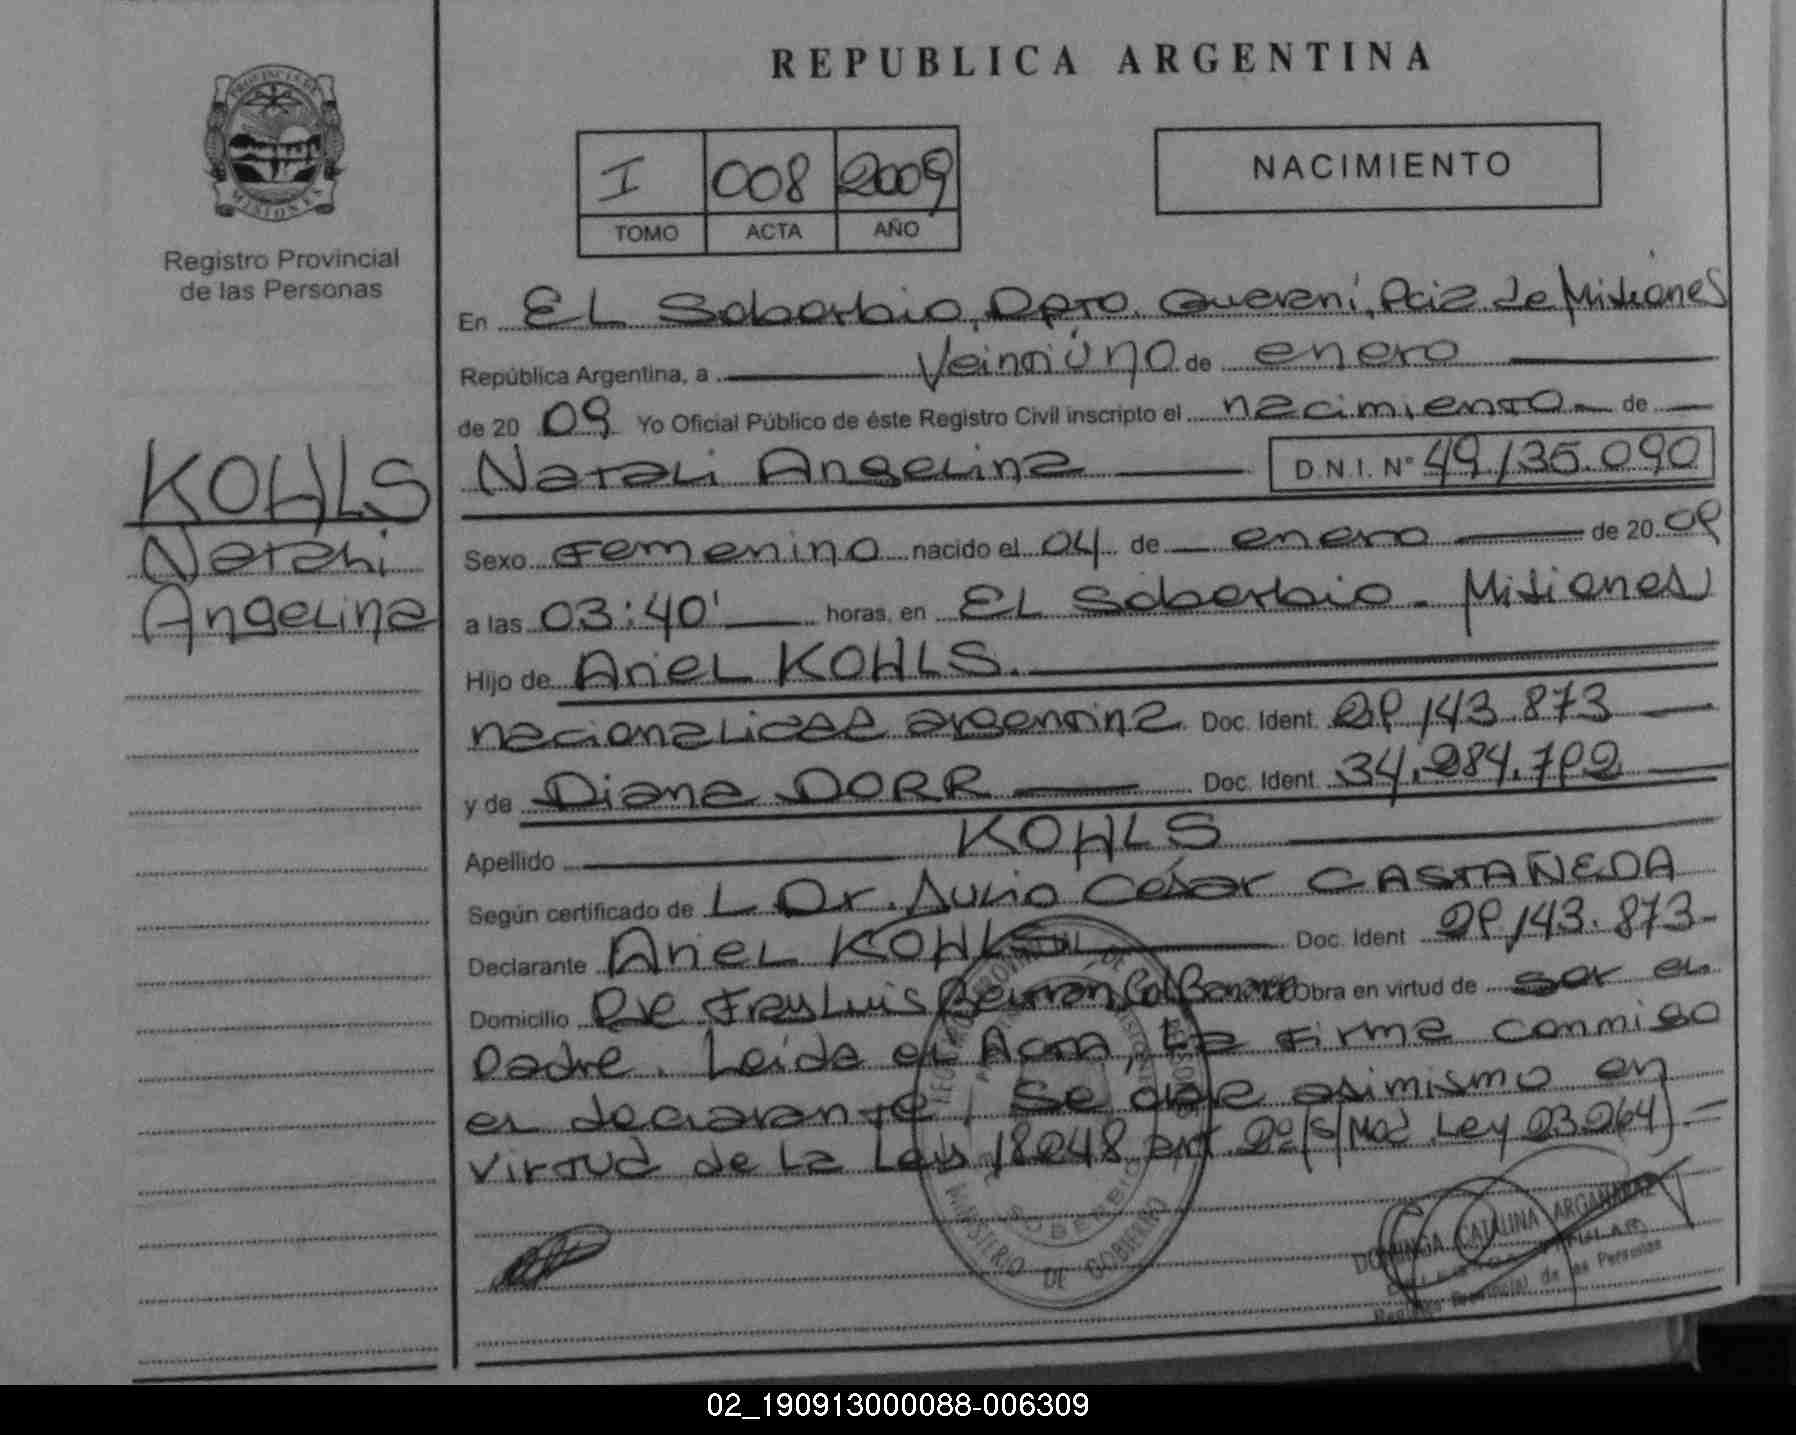 REPUBLICA ARGENTINA
PROVINCIA DE
MISIONES
Registro Provincial
de las Personas
I 008 2009
TOMO ACTA AÑO
NACIMIENTO
En EL Soberbio, Dpto. Guaraní, Pcia de Misiones
República Argentina, a Veintiúno de enero
de 20 09 Yo Oficial Público de éste Registro Civil inscripto el nacimiento de
KOHLS
Natali
Angelina
Natali Angelina D.N.I. N° 49.135.090
Sexo Femenino nacido el 04 de enero de 20 09
a las 03:40' horas, en EL Soberbio - Misiones
Hijo de Ariel KOHLS.
nacionalidad argentina Doc. Ident. 29.143.873
y de Diana DORR Doc. Ident. 34.284.792
Apellido KOHLS
Según certificado de L Dr. Julio César CASTAÑEDA
Declarante Ariel KOHLS Doc. Ident 29.143.873-
Domicilio Fray Luis Beltrán, Obra en virtud de ser el
Padre. Leída el Acta, La Firma conmigo
el declarante, Se asimismo en
virtud de la Ley 18248 art. 2º (s/Mod. Ley 23.264).=
MINISTERIO DE GOBIERNO
SOBERBIO
DOMINGA CATALINA ARGAÑARAZ
Registro Provincial de las Personas
02_190913000088-006309